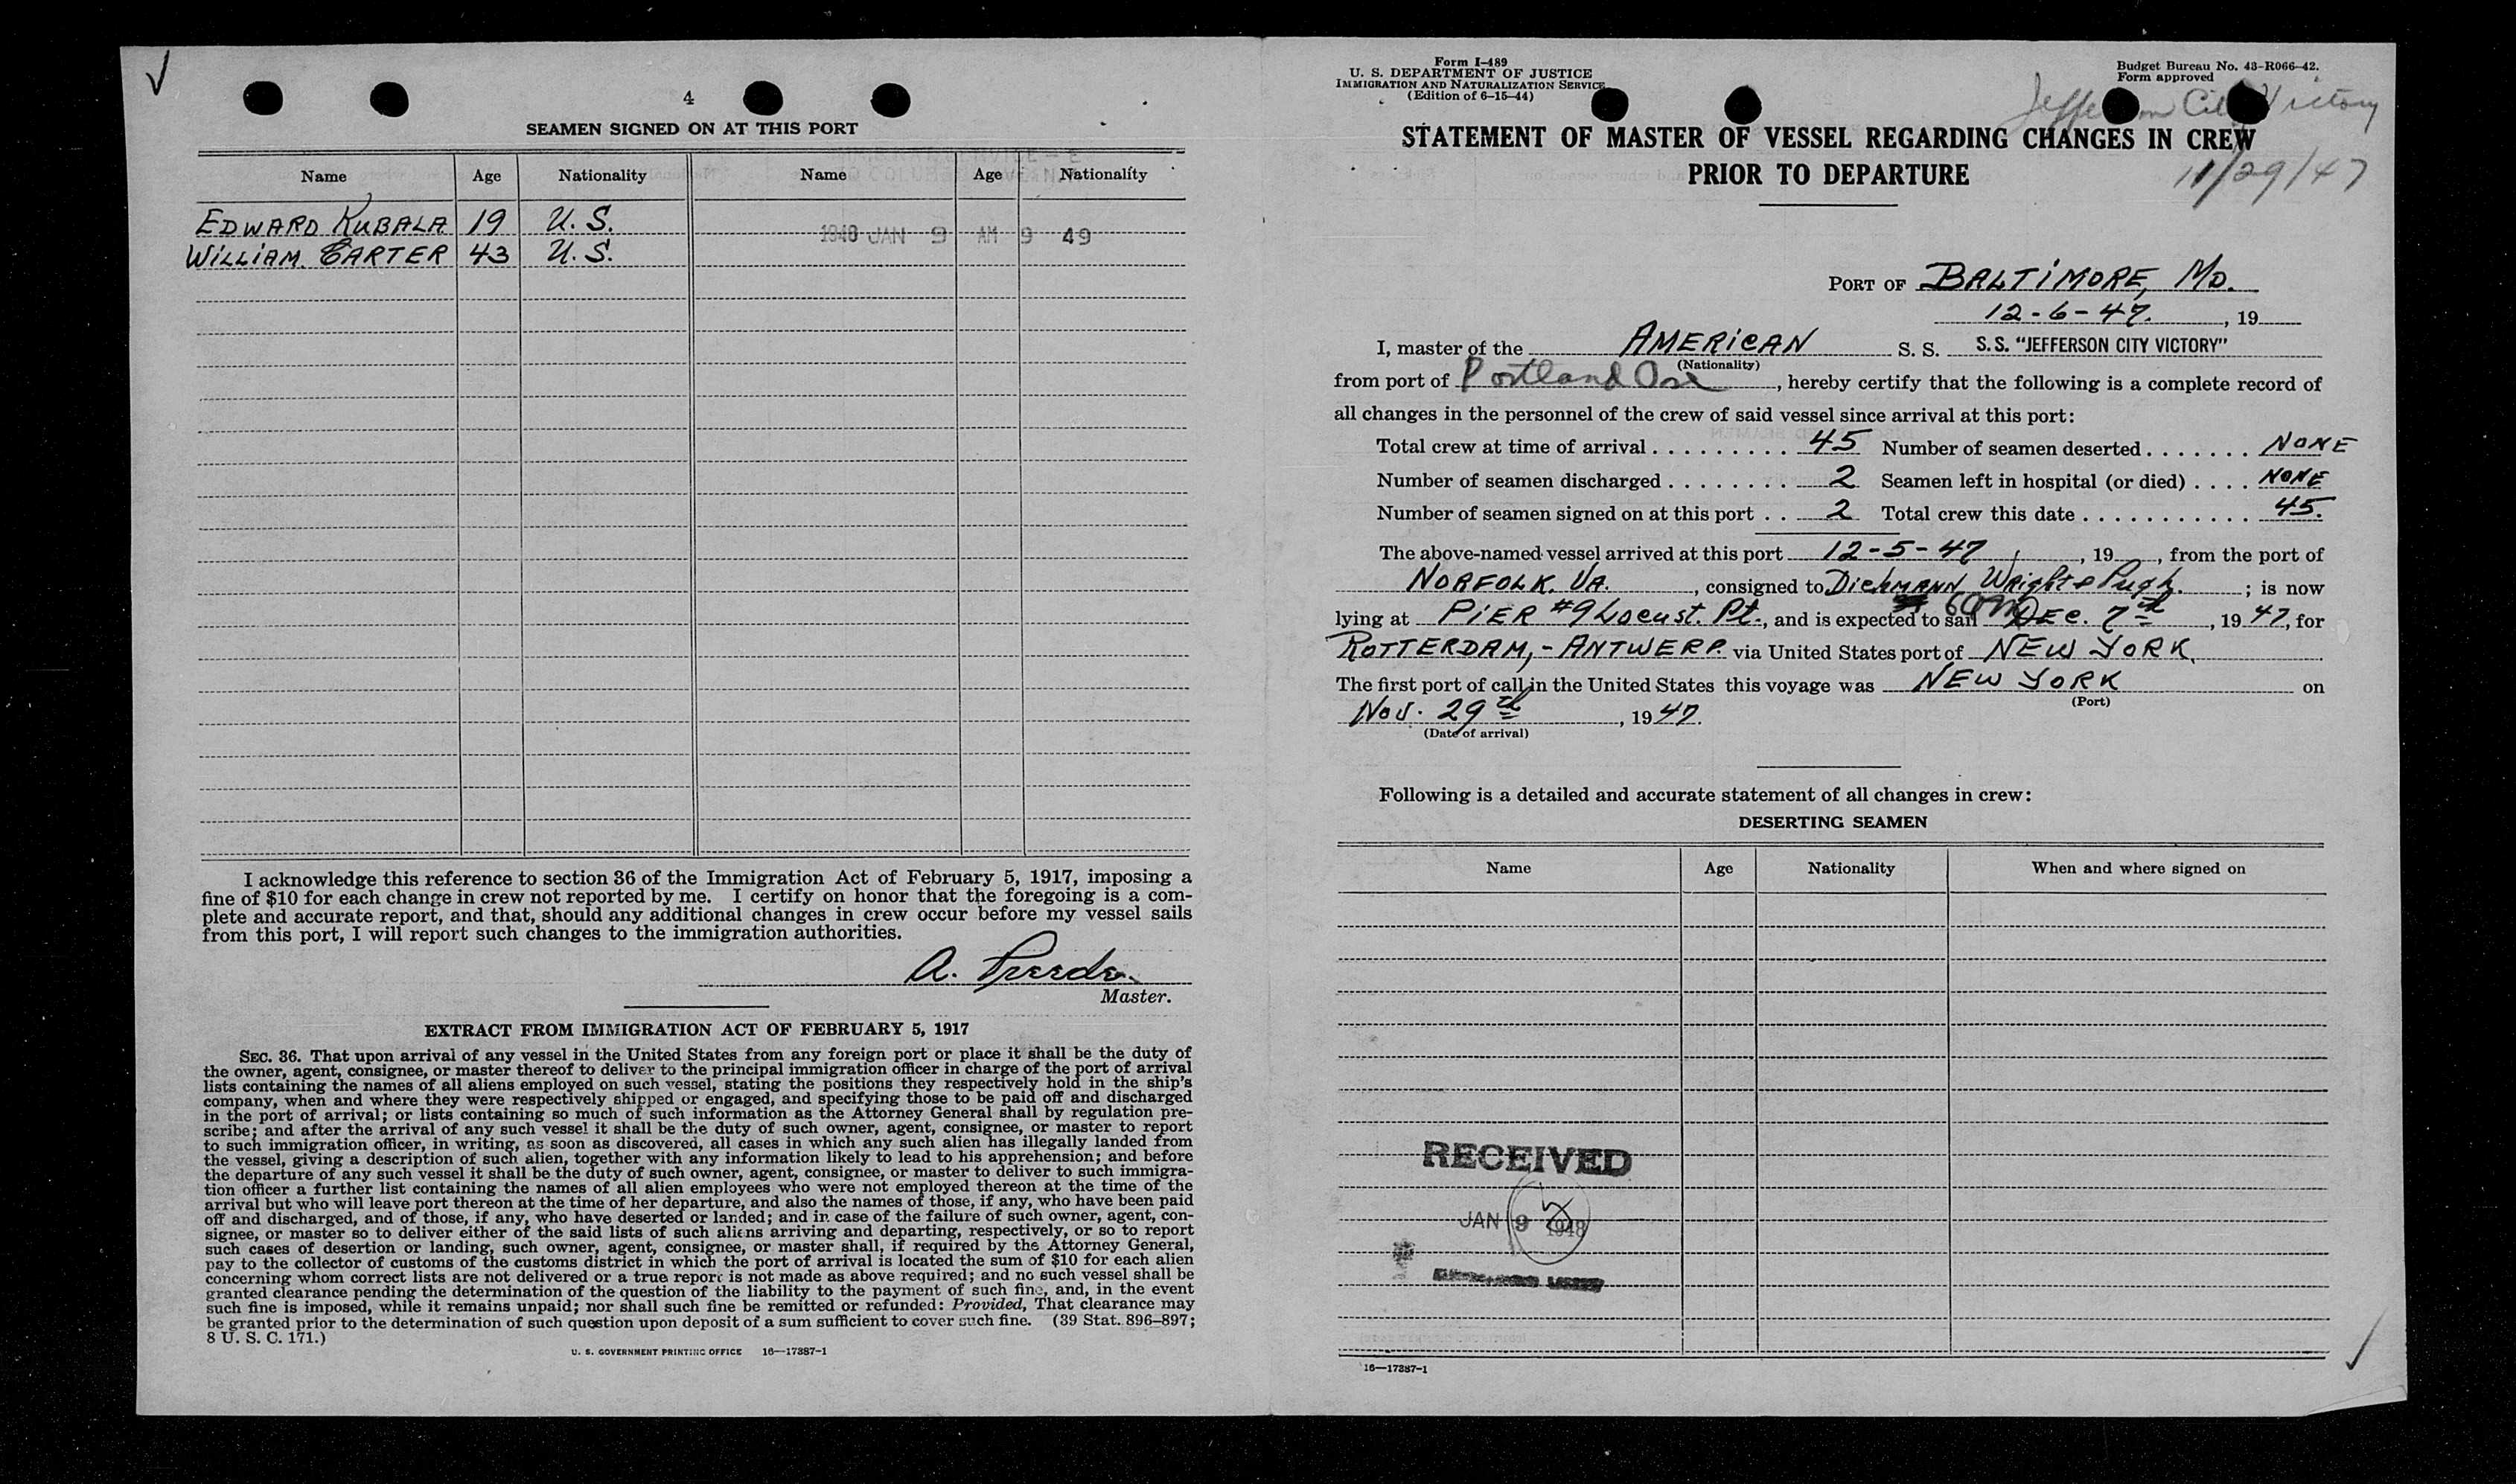 4
SEAMEN SIGNED ON AT THIS PORT
Name Age Nationality Name Age Nationality
EDWARD KUBALA 19 U. S.
1948 JAN 9 AM 9 49
WILLIAM. CARTER 43 U. S.
I acknowledge this reference to section 36 of the Immigration Act of February 5, 1917, imposing a
fine of $10 for each change in crew not reported by me. I certify on honor that the foregoing is a com-
plete and accurate report, and that, should any additional changes in crew occur before my vessel sails
from this port, I will report such changes to the immigration authorities.
A.
Master.
EXTRACT FROM IMMIGRATION ACT OF FEBRUARY 5, 1917
SEC. 36. That upon arrival of any vessel in the United States from any foreign port or place it shall be the duty of
the owner, agent, consignee, or master thereof to deliver to the principal immigration officer in charge of the port of arrival
lists containing the names of all aliens employed on such vessel, stating the positions they respectively hold in the ship's
company, when and where they were respectively shipped or engaged, and specifying those to be paid off and discharged
in the port of arrival; or lists containing so much of such information as the Attorney General shall by regulation pre-
scribe; and after the arrival of any such vessel it shall be the duty of such owner, agent, consignee, or master to report
to such immigration officer, in writing, as soon as discovered, all cases in which any such alien has illegally landed from
the vessel, giving a description of such alien, together with any information likely to lead to his apprehension; and before
the departure of any such vessel it shall be the duty of such owner, agent, consignee, or master to deliver to such immigra-
tion officer a further list containing the names of all alien employees who were not employed thereon at the time of the
arrival but who will leave port thereon at the time of her departure, and also the names of those, if any, who have been paid
off and discharged, and of those, if any, who have deserted or landed; and in case of the failure of such owner, agent, con-
signee, or master so to deliver either of the said lists of such aliens arriving and departing, respectively, or so to report
such cases of desertion or landing, such owner, agent, consignee, or master shall, if required by the Attorney General,
pay to the collector of customs of the customs district in which the port of arrival is located the sum of $10 for each alien
concerning whom correct lists are not delivered or a true report is not made as above required; and no such vessel shall be
granted clearance pending the determination of the question of the liability to the payment of such fine, and, in the event
such fine is imposed, while it remains unpaid; nor shall such fine be remitted or refunded: Provided, That clearance may
be granted prior to the determination of such question upon deposit of a sum sufficient to cover such fine. (39 Stat. 896–897;
8 U. S. C. 171.)
U. S. GOVERNMENT PRINTING OFFICE 16—17387-1
Form I-489
U. S. DEPARTMENT OF JUSTICE
IMMIGRATION AND NATURALIZATION SERVICE
(Edition of 6-15-44)
Budget Bureau No. 43-R066-42.
Form approved
Jefferson City Victory
11/29/47
STATEMENT OF MASTER OF VESSEL REGARDING CHANGES IN CREW
PRIOR TO DEPARTURE
PORT OF BALTIMORE, MD.
12-6-47. , 19
I, master of the AMERICAN S. S. S.S. "JEFFERSON CITY VICTORY"
(Nationality)
from port of Portland Ore , hereby certify that the following is a complete record of
all changes in the personnel of the crew of said vessel since arrival at this port:
Total crew at time of arrival . . . . . . . . . 45 Number of seamen deserted . . . . . . . NONE
Number of seamen discharged . . . . . . . . 2 Seamen left in hospital (or died) . . . . NONE
Number of seamen signed on at this port . . 2 Total crew this date . . . . . . . . . . . 45.
The above-named vessel arrived at this port 12-5-47 , 19 , from the port of
NORFOLK. VA. , consigned to Dichmann Wright & Pugh. ; is now
lying at PIER #9 Locust. Pt. , and is expected to sail DEC. 7th , 19 47, for
ROTTERDAM, - ANTWERP. via United States port of NEW YORK.
The first port of call in the United States this voyage was NEW YORK on
(Port)
Nov. 29th , 19 47.
(Date of arrival)
Following is a detailed and accurate statement of all changes in crew:
DESERTING SEAMEN
Name Age Nationality When and where signed on
RECEIVED
JAN 9 1948
16—17387-1